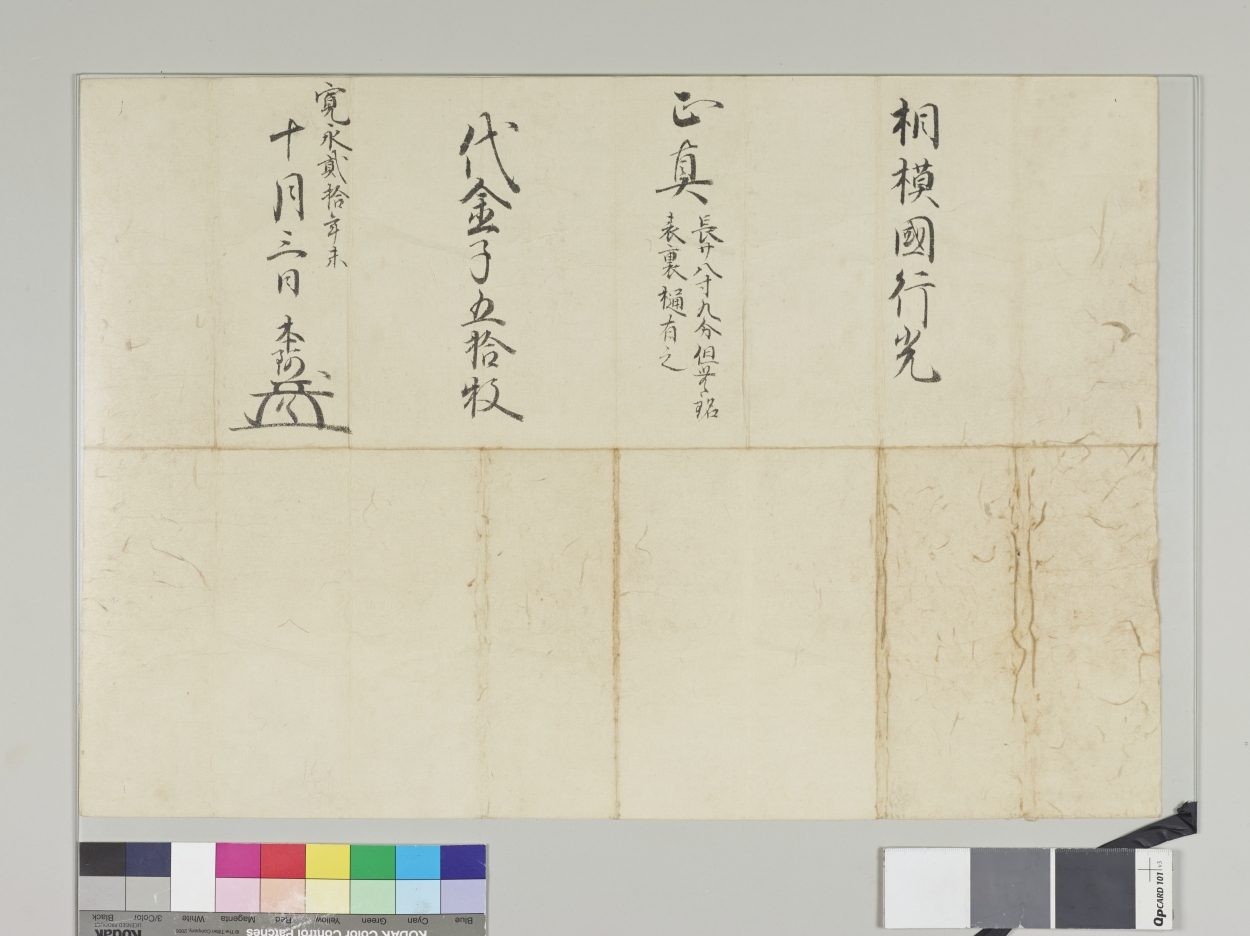 相模國行光
正真
長廿八寸九分但無銘
表裏樋有之
代金子五拾枚
寛永貳拾年未
十月三日 本阿
Blue
Cyan
Green
Yellow
Red
Magenta
White
3/Color
Black
KODAK Color Control Patches
Kodak
LICENSED PRODUCT
© The Tiffen Company, 2000
QPCARD 101 v3